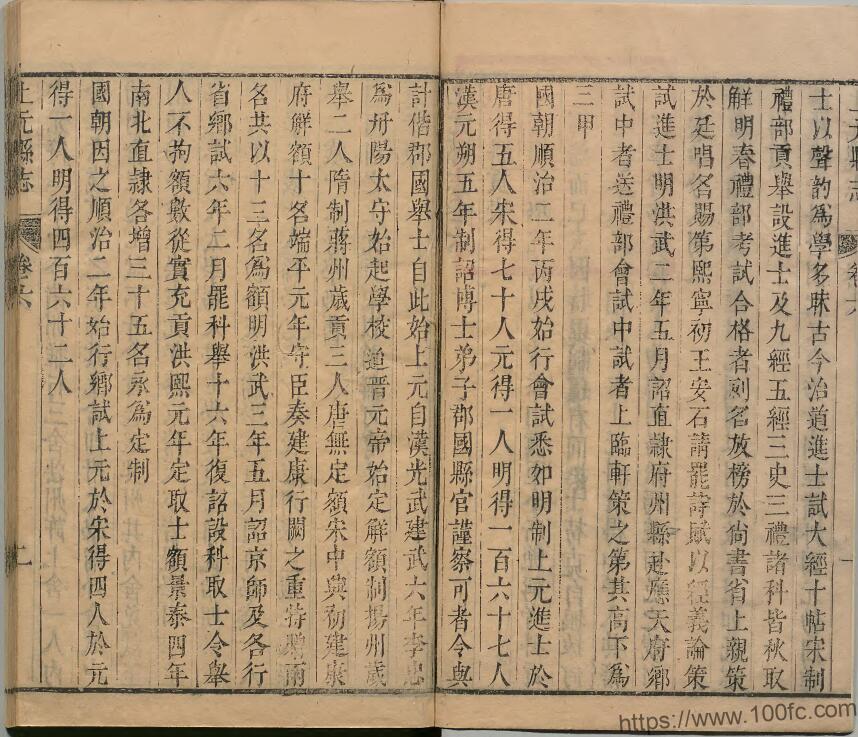 士以聲韵爲學多昧古今治道進士試大經十帖宋制
禮部貢舉設進士及九經五經三史三禮諸科皆秋取
解明春禮部考試合格者列名放榜於尚書省上親策
於廷唱名賜第熙寧初王安石請罷詩賦以經義論策
試進士明洪武二年五月詔直隸府州縣赴應天府鄉
試中者送禮部會試中試者上臨軒策之第其高下爲
三甲
國朝順治二年丙戌始行會試悉如明制上元進士於
唐得五人宋得七十人元得一人明得一百六十七人
漢元朔五年制詔博士弟子郡國縣官謹察可者令與
計偕郡國舉士自此始上元自漢光武建武六年李忠
爲丹陽太守始起學校迨晉元帝始定解額制揚州歲
舉二人隋制蔣州歲貢三人唐無定額宋中興初建康
府解額十名端平元年守臣奏建康行闕之重特增兩
名共以十三名爲額明洪武三年五月詔京師及各行
省鄉試六年二月罷科舉十六年復詔設科取士令舉
人不拘額數從實充貢洪熙元年定取士額景泰四年
南北直隸各增三十五名永爲定制
國朝因之順治二年始行鄉試上元於宋得四人於元
得一人明得四百六十二人
上元縣志
卷六
https://www.100fc.com